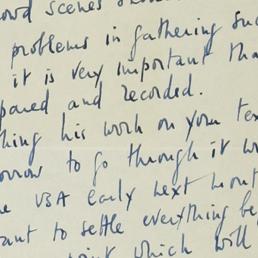 owd scenes
problems in gathering suc
it is very important tha
pared and recorded.
hing his work on your tex
orrow to go through it w
e USA early next mont
ant to settle everything be
point which will